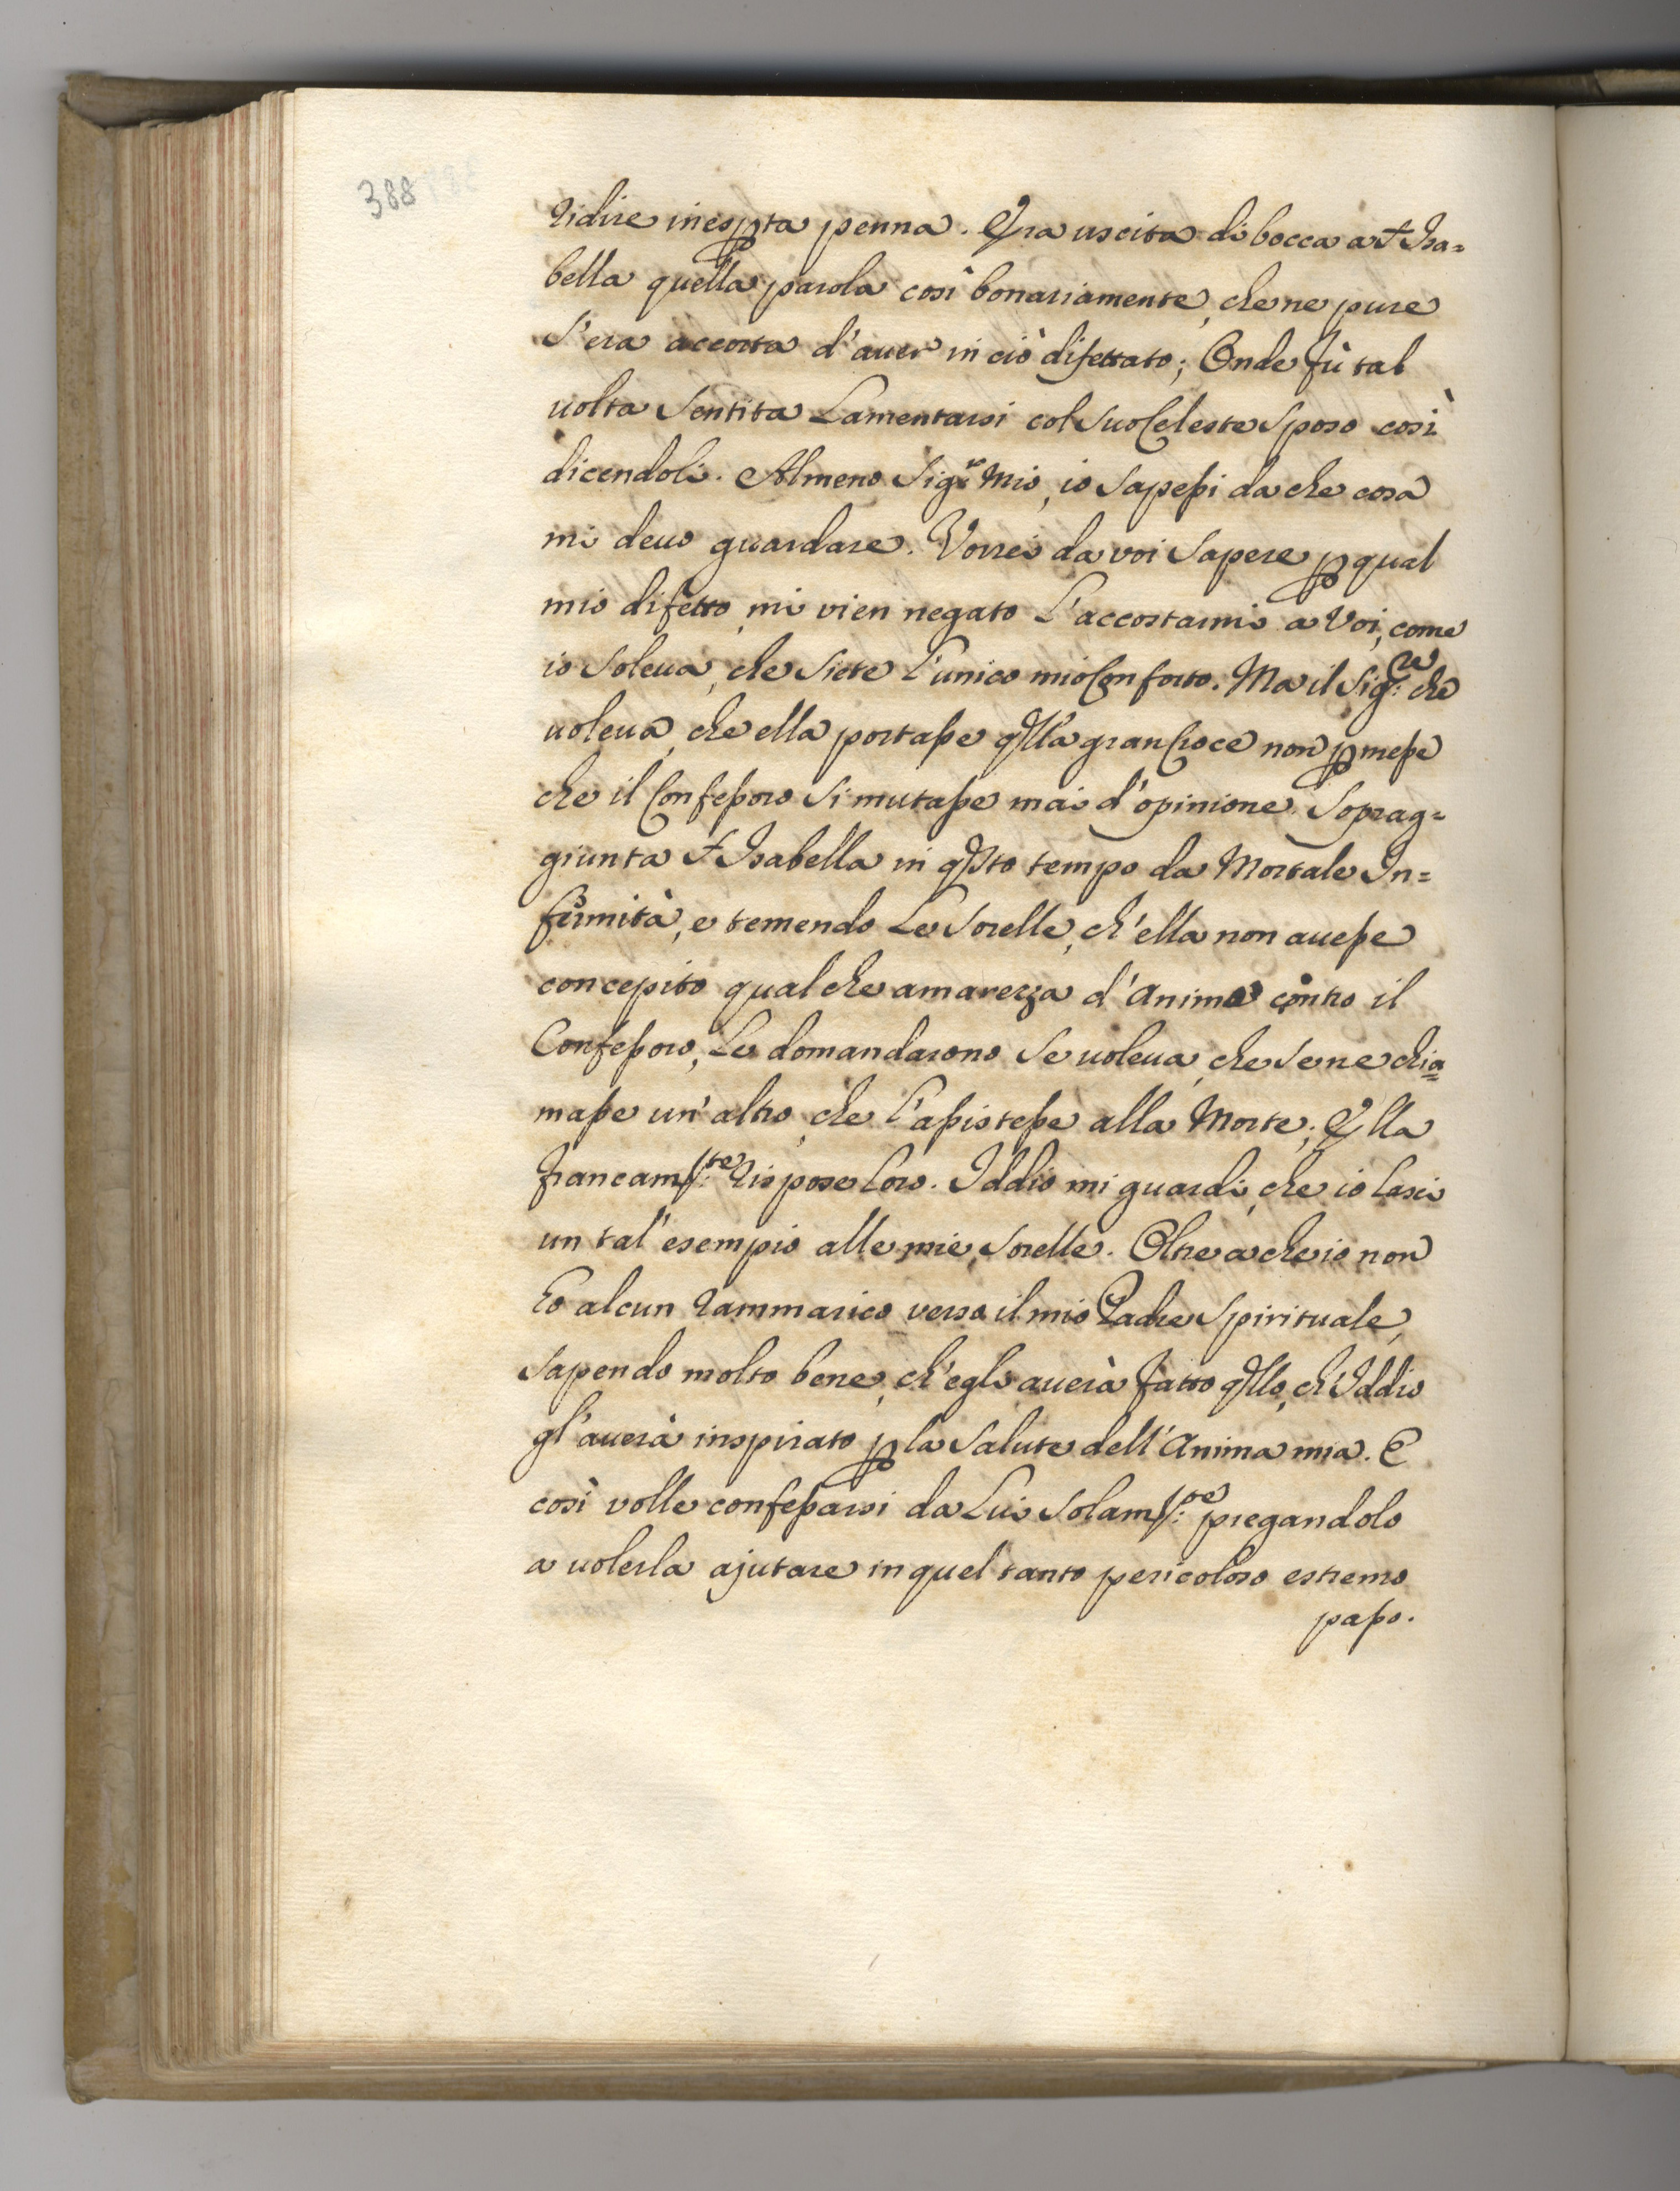 388
ridire inesperta penna. Era uscita di bocca a S. Isa=
bella quella parola così bonariamente, che ne pure
s'era accorta d'auer in ciò difettato; Onde fù tal
uolta sentita Lamentarsi col suo Celeste Sposo così
dicendoli. Almeno Sig.re Mio, io sapessi da che cosa
mi deuo guardare. Vorrei da voi sapere p qual
mio difetto, mi vien negato l'accostarmi a Voi, come
io soleua, che siete l'unico mio Conforto. Ma il Sig.re che
uoleua, che ella portasse qlla gran Croce non pmesse
che il Confessoro si mutasse mai d'opinione. Soprag=
giunta S. Isabella in qsto tempo da Mortale In=
firmità, e temendo Le Sorelle, ch'ella non auesse
concepito qualche amarezza d'Animo contro il
Confessoro, Le domandarono se uoleua, che se ne chia=
masse un'altro, che l'assistesse alla Morte; Ella
francam.te rispose loro. Iddio mi guardi, che io lasci
un tal'esempio alle mie Sorelle. Oltre a che io non
ho alcun rammarico verso il mio Padre Spirituale,
sapendo molto bene, ch'egli auerà fatto qllo, ch'Iddio
gl'auerà inspirato p la salute dell'Anima mia. E
così volle confessarsi da Lui solam.te pregandolo
a uolerla ajutare in quel tanto pericoloso estremo
passo.